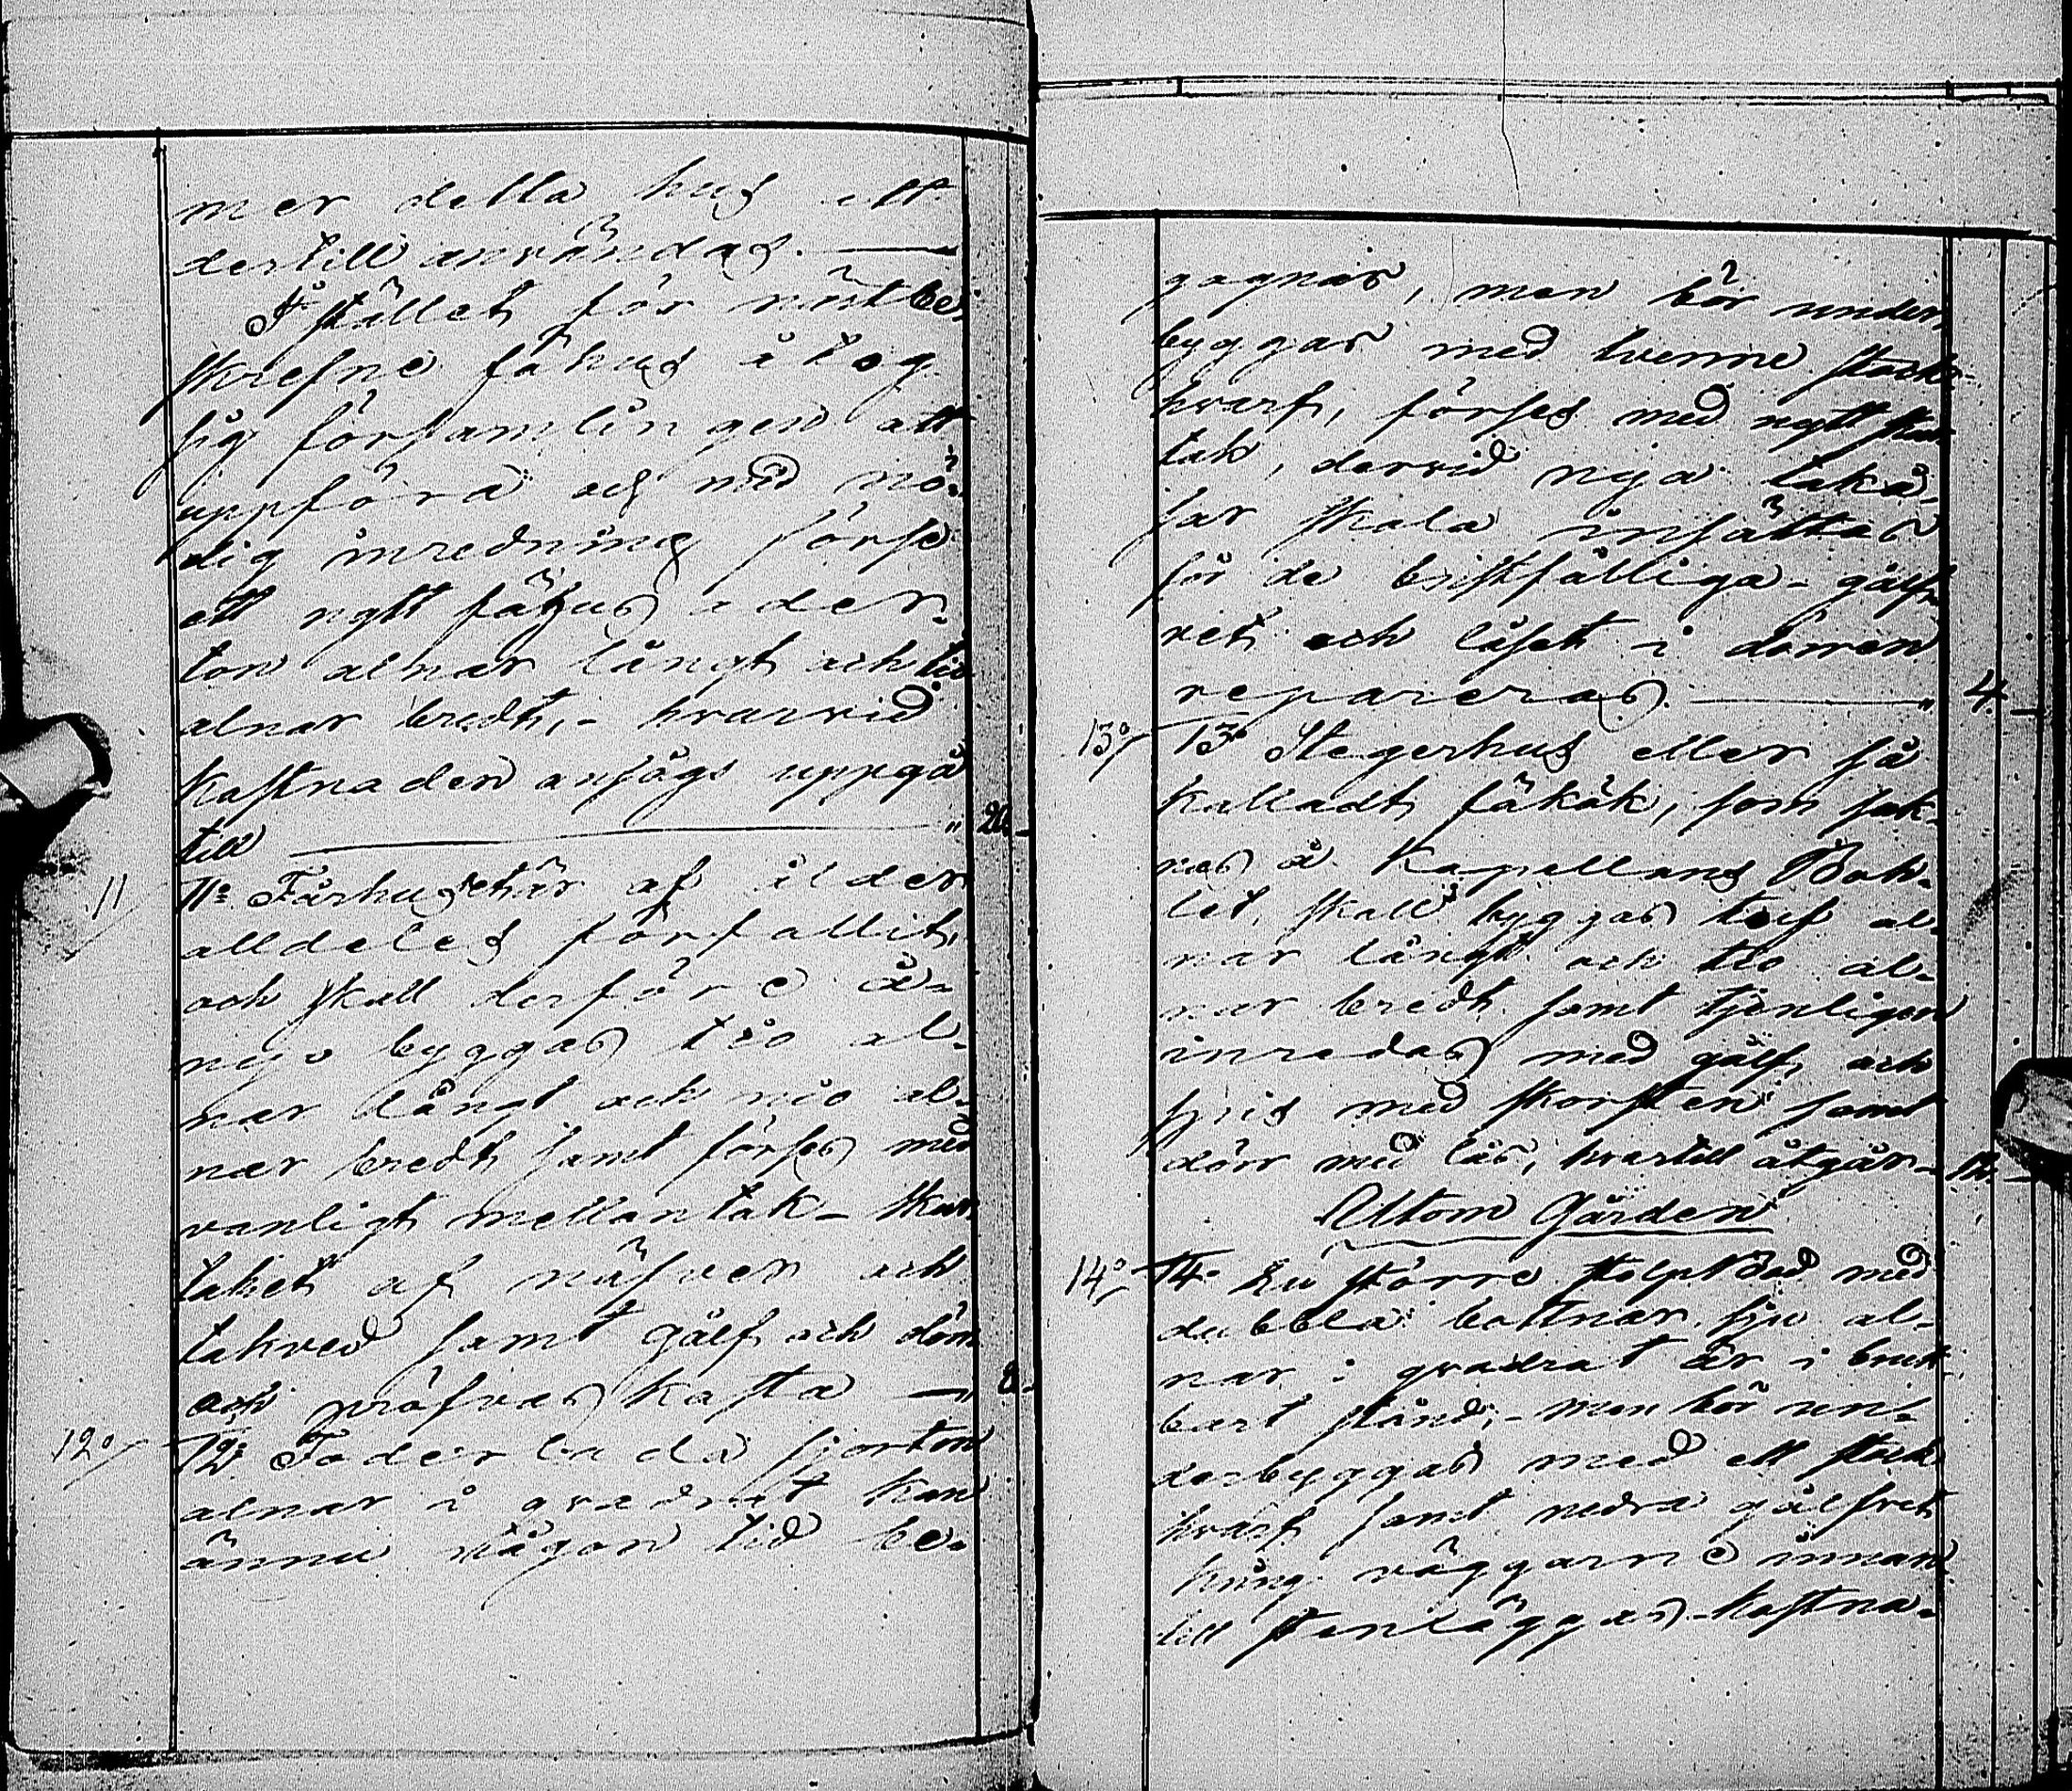 mer detta hus ett
dertill användas. —
I stället för nästbe,
skrefne fähus åtog
sig församlingen att
uppföra och med nö,
dig inredning förse
ett nytt fähus ader-
ton alnar långt och tio
alnar bredt, - hvarvid
kostnaden ansågs uppgå
till — " 20 -
11 11º Fårhuset är af ålder
alldeles förfallit,
och skall derföre å-
nyo byggas tio al-
nar långt och nio al-
nar bredt samt förses med
vanligt mellantak - skar,
taket af näfver och
takved samt gålf och dörr
och pröfvas kosta — " 8 -
12º/ 12º Foderlada fjorton
alnar i qvadrat kan
ännu någon tid be-
gagnas, men bör under,
byggas med tvenne stock-
hvarf, förses med nytt skar
tak, dervid nya takå,
sar skola insättas
för de bristfälliga - gålf,
vet och låset i dörren
repareras. — " 4. -
13º/ 13º Stegerhus eller så
kalladt fäkåk, som sak-
nas å Kapellans Boh-
let, skall byggas tolf al-
nar långt och tio al-
nar bredt samt tjenligen
inredas med gålf, och
spis med skorsten samt
dörr med lås, hvartill åtgår - 12 -
Utom Gården
14º/ 14º En större stolpbod med
dubbla bottnar, sju al-
nar i qvadrat är i bruk
bart stånd, - men bör un-
derbyggas med ett stock
hvarf samt nedra gålfvet
kring väggarne innan
till stenläggas - kostna-